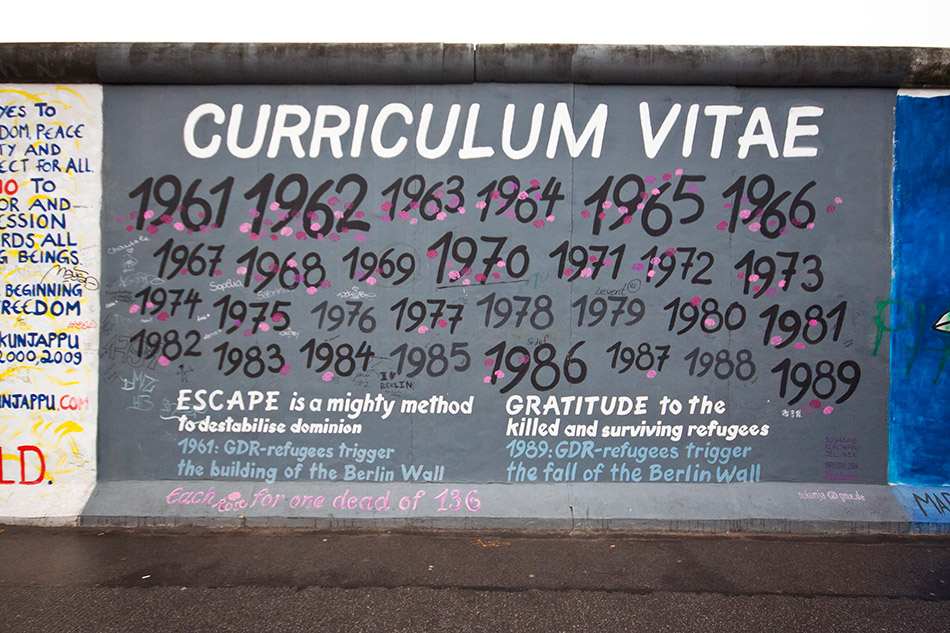 YES TO
DOM PEACE
TY AND
ECT FOR ALL.
NO TO
OR AND
ESSION
RDS ALL
G BEINGS.
BEGINNING
FREEDOM
KUNJAPPU
2000,2009
NJAPPU.COM
LD.
CURRICULUM VITAE
1961 1962 1963 1964 1965 1966
1967 1968 1969 1970 1971 1972 1973
1974 1975 1976 1977 1978 1979 1980 1981
1982 1983 1984 1985 1986 1987 1988 1989
Sophia
Levent
I ♥
BERLIN
ESCAPE is a mighty method
to destabilise dominion
1961: GDR-refugees trigger
the building of the Berlin Wall
GRATITUDE to the
killed and surviving refugees
1989: GDR-refugees trigger
the fall of the Berlin Wall
SUSANNE
KUNJAPPU
JELLINEK
Each Rose for one dead of 136
sukunja@gmx.de